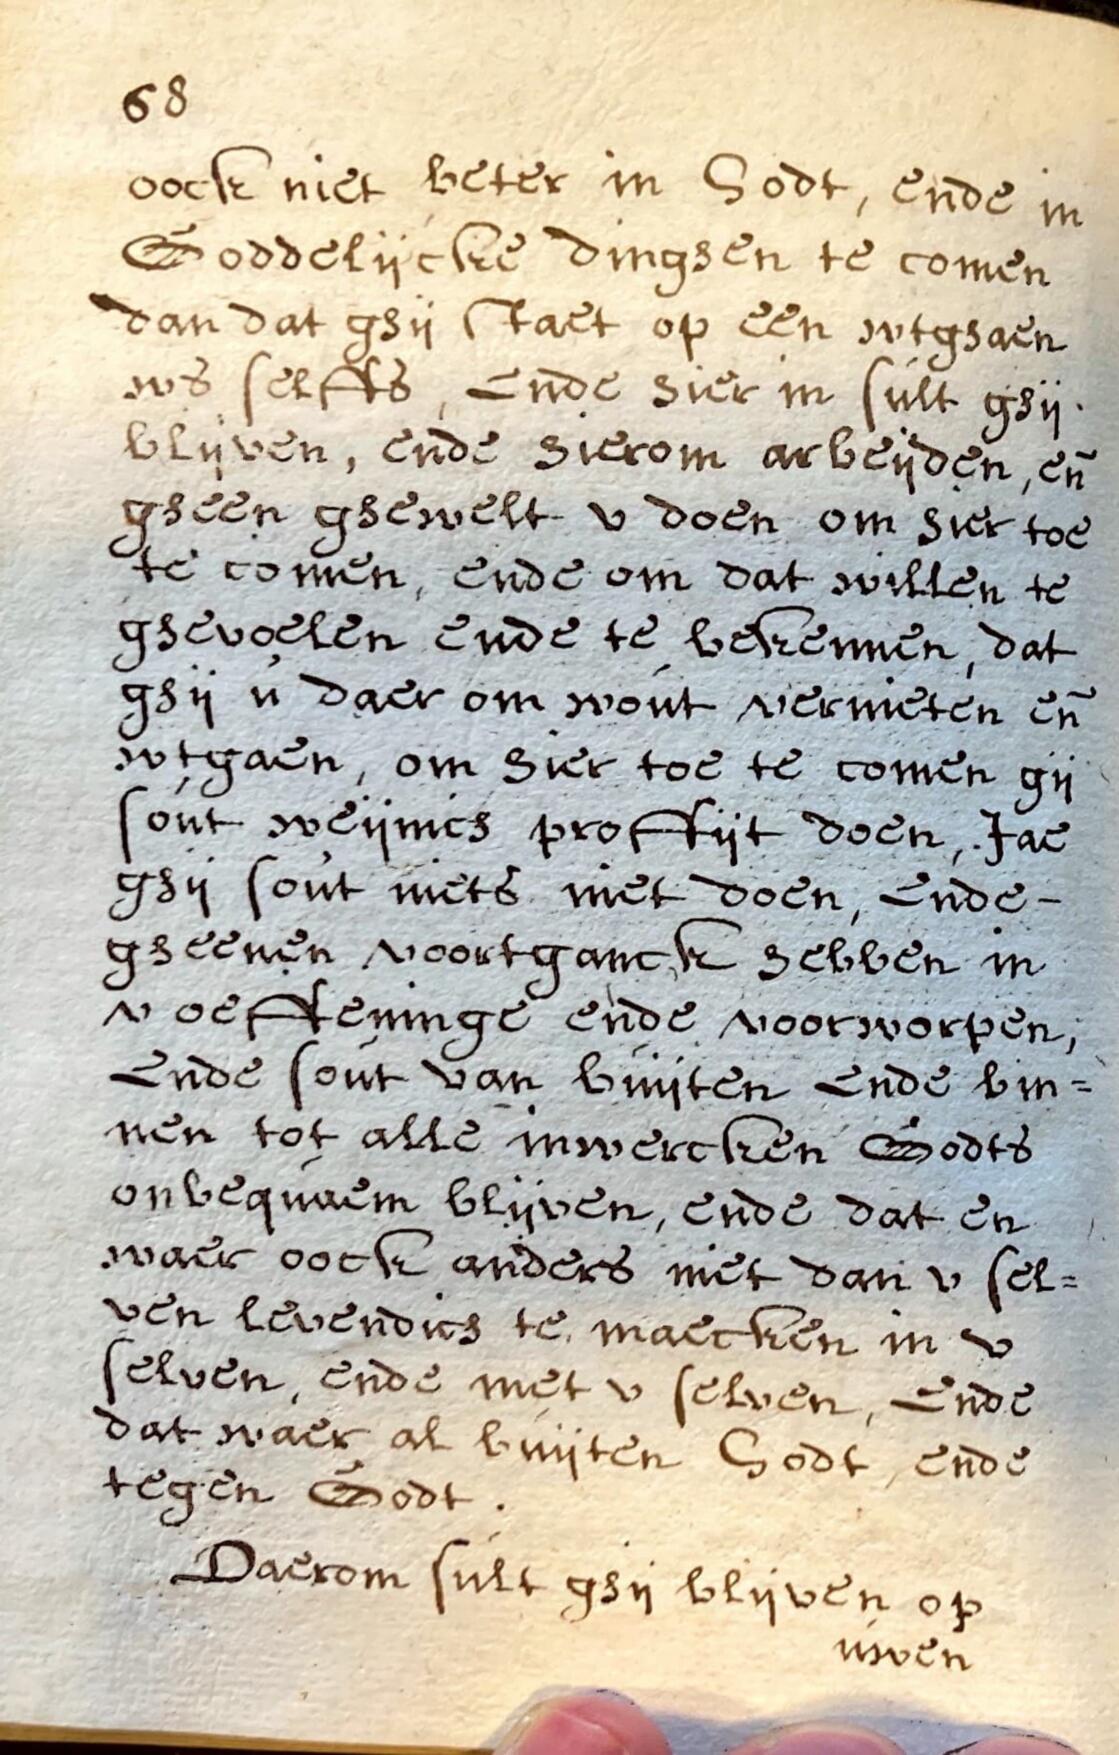 68
oock niet beter in Godt, ende in
Goddelijcke dinghen te comen
dan dat ghij staet op een wtghaen
ws selffs, Ende hier in sult ghij
blijven, ende hierom arbeijden, en̄
gheen ghewelt v doen om hier toe
te comen, ende om dat willen te
ghevoelen ende te bekennen, dat
ghij ú daer om wout vernieten en̄
wtgaen, om hier toe te comen gij
sout weijnich proffijt doen, Jae
ghij sout niets niet doen, Ende-
gheenen voortganck hebben in
v oeffeninge ende voorworpen,
Ende sout van buijten Ende bin=
nen tot alle inwercken Godts
onbequaem blijven, ende dat en
waer oock anders niet dan v sel=
ven levendich te maecken in v
selven, ende met v selven, Ende
dat waer al buijten Godt, ende
tegen Godt.
Daerom sult ghij blijven op
uwen